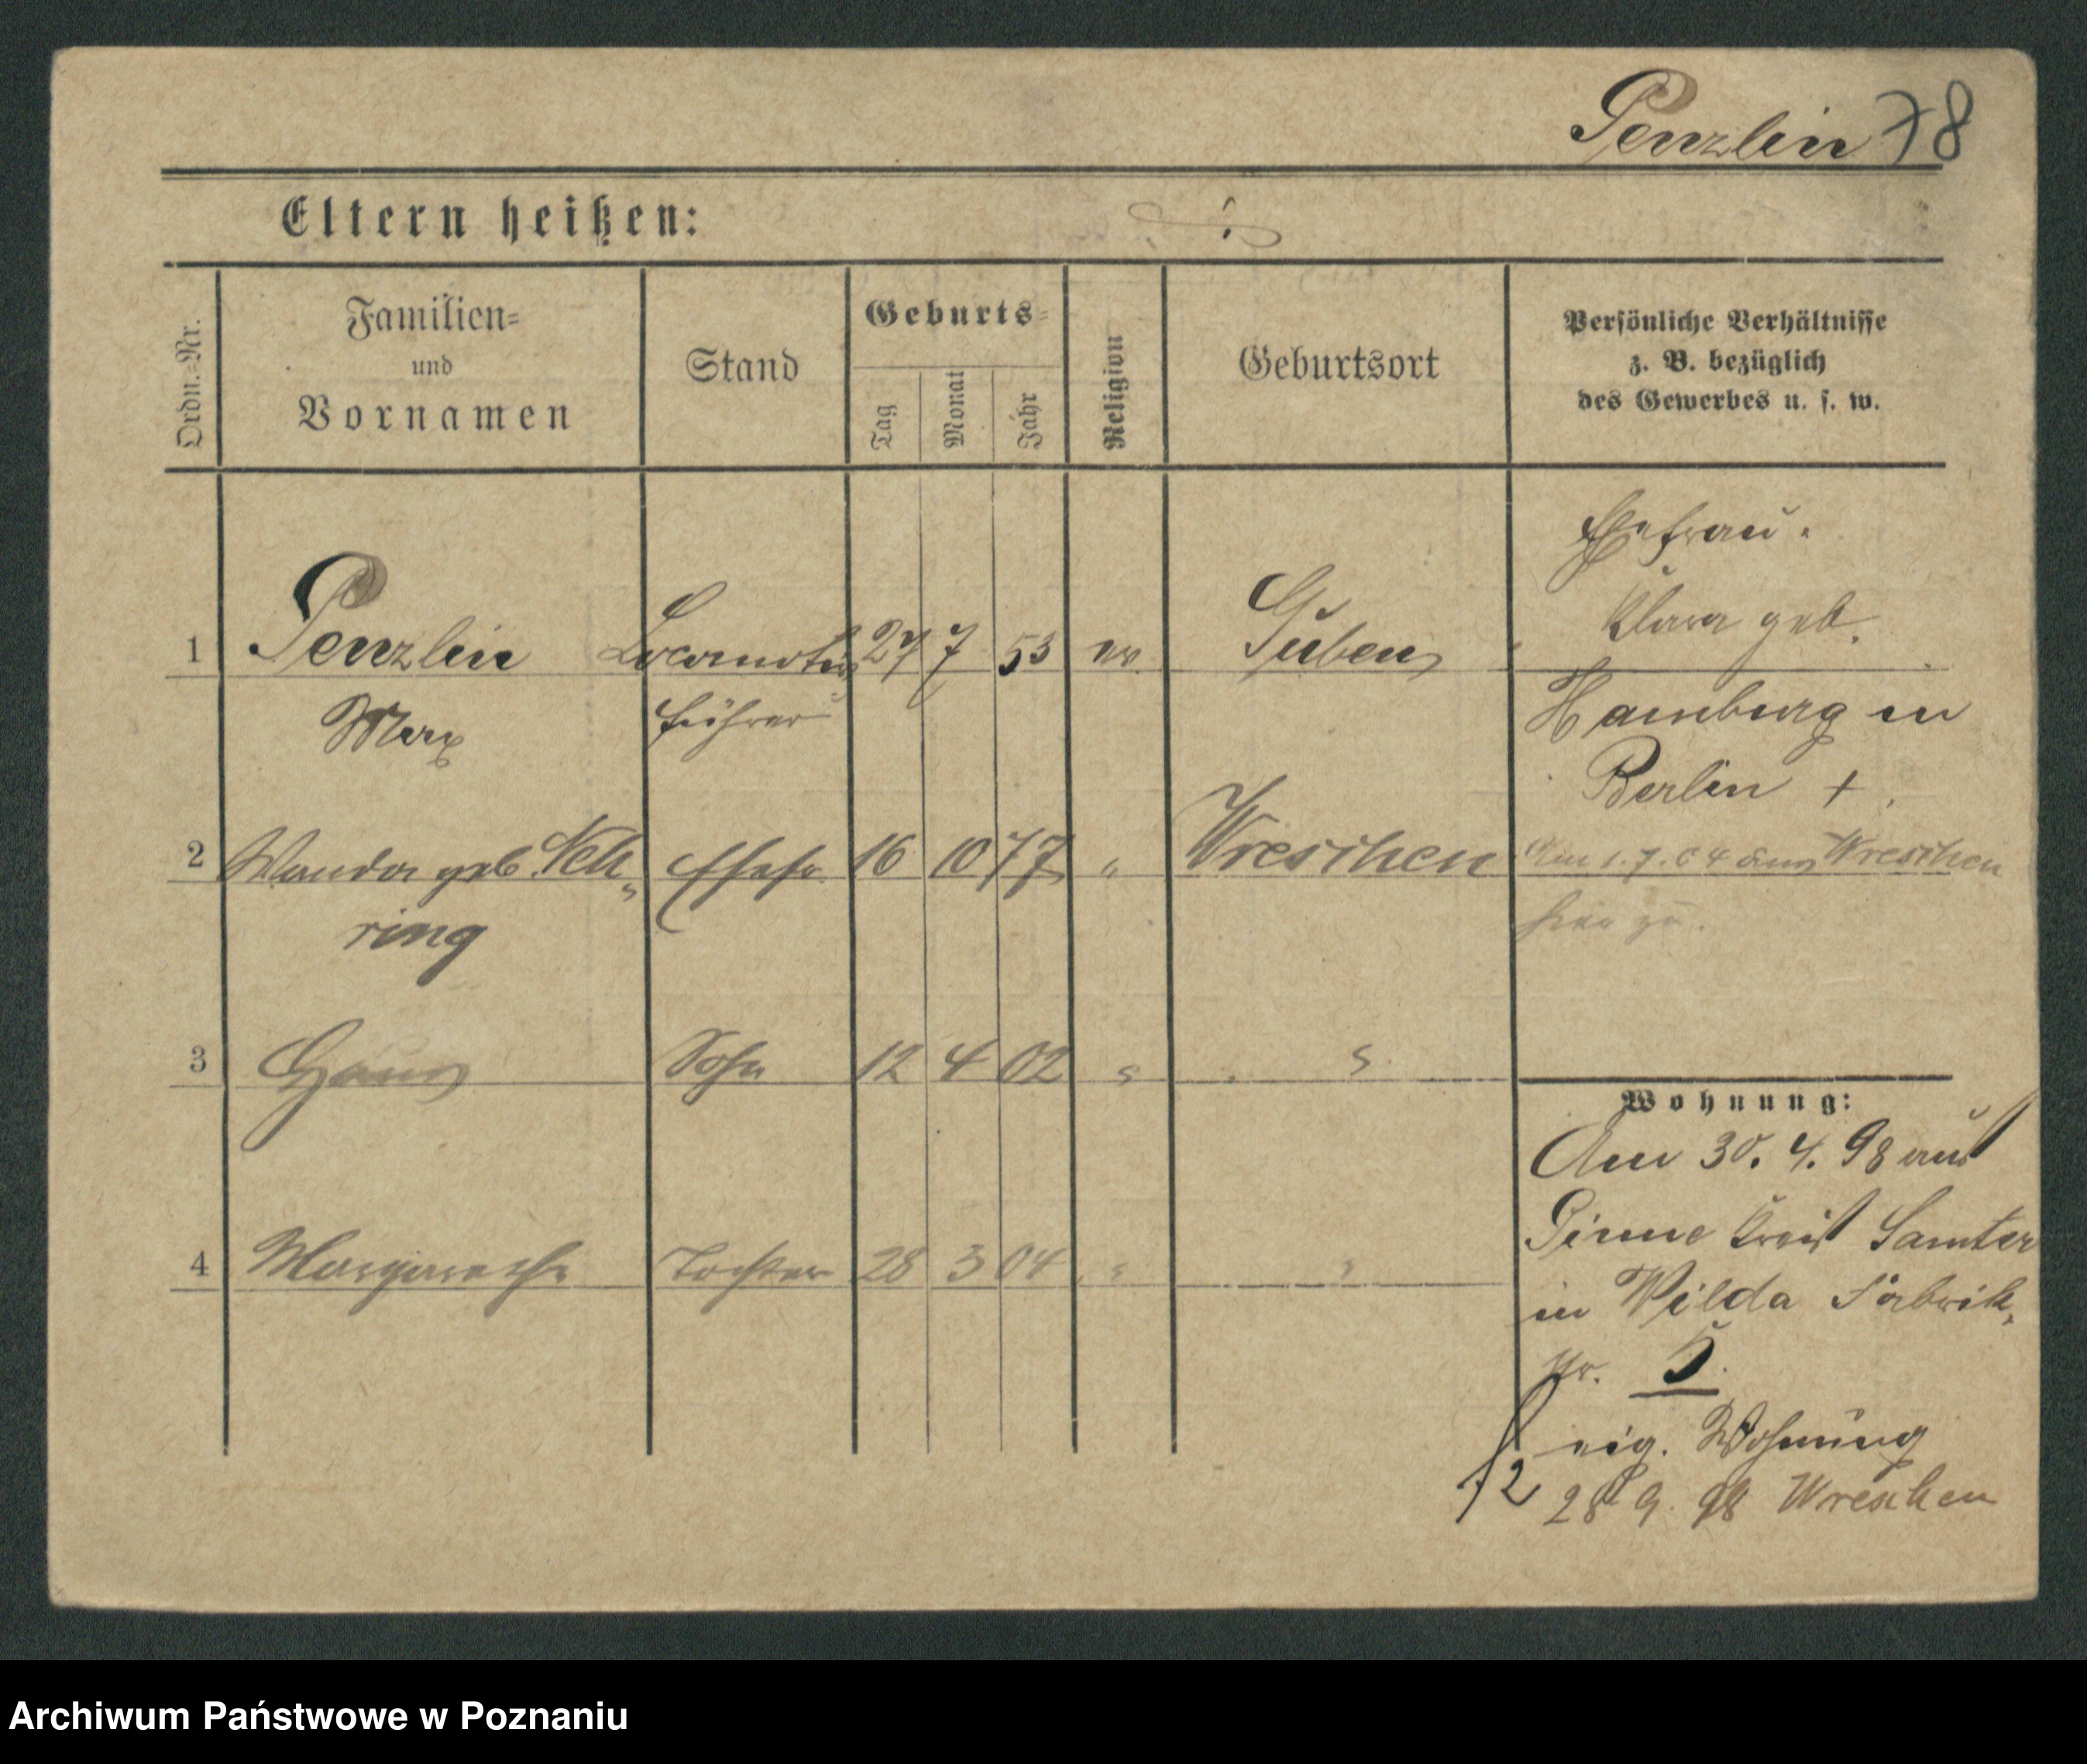 Penzlin 78
Eltern heißen:
Ordn.=Nr.
Familien=
und
Vornamen
Stand
Geburts=
Tag
Monat
Jahr
Religion
Geburtsort
Persönliche Verhältnisse
z. B. bezüglich
des Gewerbes u. s. w.
Ehefrau.
Klara geb.
1 Penzlin Locomotiv 27 7 53 ev Guben
Max führer
Hamburg in
Berlin +
2 Wanda geb. Neh= Ehefr. 16 10 77 " Wreschen
ring
Am 1.7.04 aus Wreschen
hier zu.
3 Hans Sohn 12 4 02 " "
4 Margarethe Tochter 28 3 04 " "
Wohnung:
Am 30. 4. 98 aus
Pinne Kreis Samter
in Wilda Fabrik=
Str. 5.
eig. Wohnung
28 9. 98 Wreschen
Archiwum Państwowe w Poznaniu